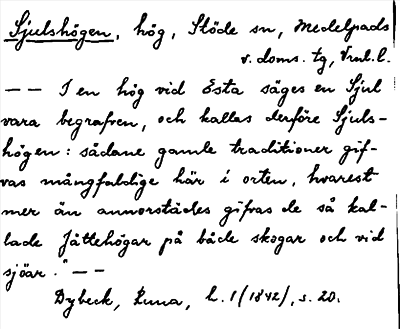 Sjulshögen, hög, Stöde sn, Medelpads
v. doms. tg, Vnl. l.
— — I en hög vid Esta säges en Sjul
vara begrafven, och kallas derföre Sjuls-
högen: sådane gamle traditioner gif-
vas mångfaldige här i orten, hvarest
mer än annorstädes gifvas de så kal-
lade Jättehögar på både skogar och vid
sjöar." — —
Dybeck, Runa, h. 1 (1842), s. 20.